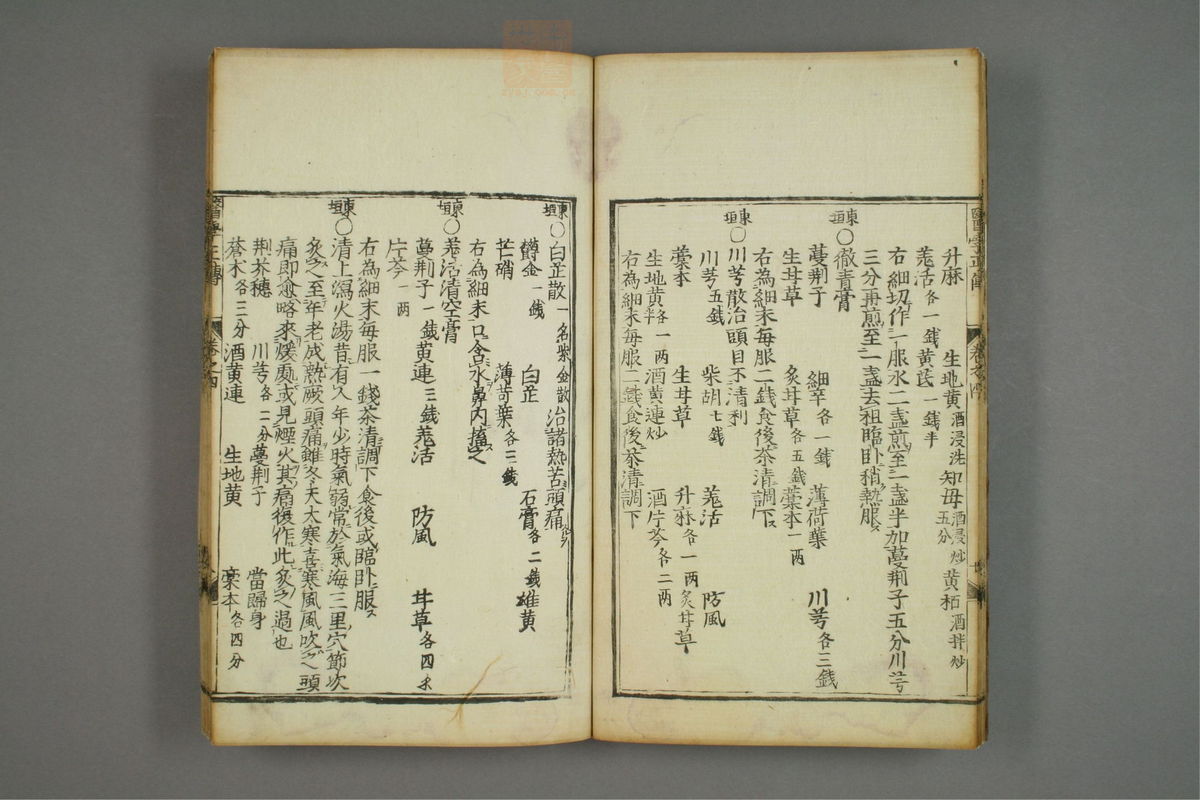 升麻　生地黄酒浸洗　知母酒浸炒五分　黄栢酒拌炒
羗活各一錢　黄芪一錢半
右細切作一服水二盞煎至一盞半加蔓荆子五分川芎
三分再煎至一盞去柤臨卧稍熱服
東垣〇徹青膏
蔓荆子　細辛各一錢　薄荷葉　川芎各三錢
生甘草　炙甘草各五錢　藁本一两
右為細末每服二錢食後茶清調下
東垣〇川芎散治頭目不清利
川芎五錢　柴胡七錢　羗活　防風
藁本　生甘草　升麻各一两　炙甘草
生地黄各一两　酒黄連炒　酒片芩各二两
右為細末每服二錢食後茶清調下
醫學正傳　卷之四
東垣〇白芷散一名紫金散治諸熱苦頭痛
欝金一錢　白芷　石膏各二錢　雄黄
芒硝　薄荷葉各三錢
右為細末口含水鼻内搐之
東垣〇羗活清空膏
蔓荆子一錢　黄連三錢　羗活　防風　甘草各四
片芩一两
右為細末每服一錢茶清調下食後或臨卧服
東垣〇清上瀉火湯昔有人年少時氣弱常於氣海三里穴節次
灸之至年老成熱厥頭痛雖冬天大寒喜寒風風吹之頭
痛即愈略來煖處或見煙火其痛復作此灸之過也
荆芥穗　川芎各二分　蔓荆子　當歸身
蒼术各三分　酒黄連　生地黄　藁本各四分
醫學正傳　卷之四